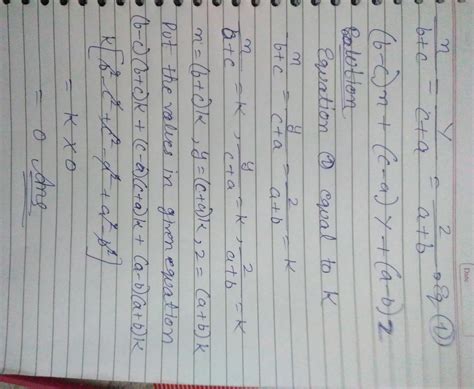 n/b+c = y/c+a = 2/a+b eq ①
(b-c)n + (c-a)y + (a-b)2
Solution
Equation ① equal to K
n/b+c = y/c+a = 2/a+b = K
n/b+c = K, y/c+a = K, 2/a+b = K
n = (b+c)K, y = (c+a)K, 2 = (a+b)K
Put the values in given equation
(b-c)(b+c)K + (c-a)(c+a)K + (a-b)(a+b)K
K[b²-c²+c²-a²+a²-b²]
= K×0
= 0 Ans